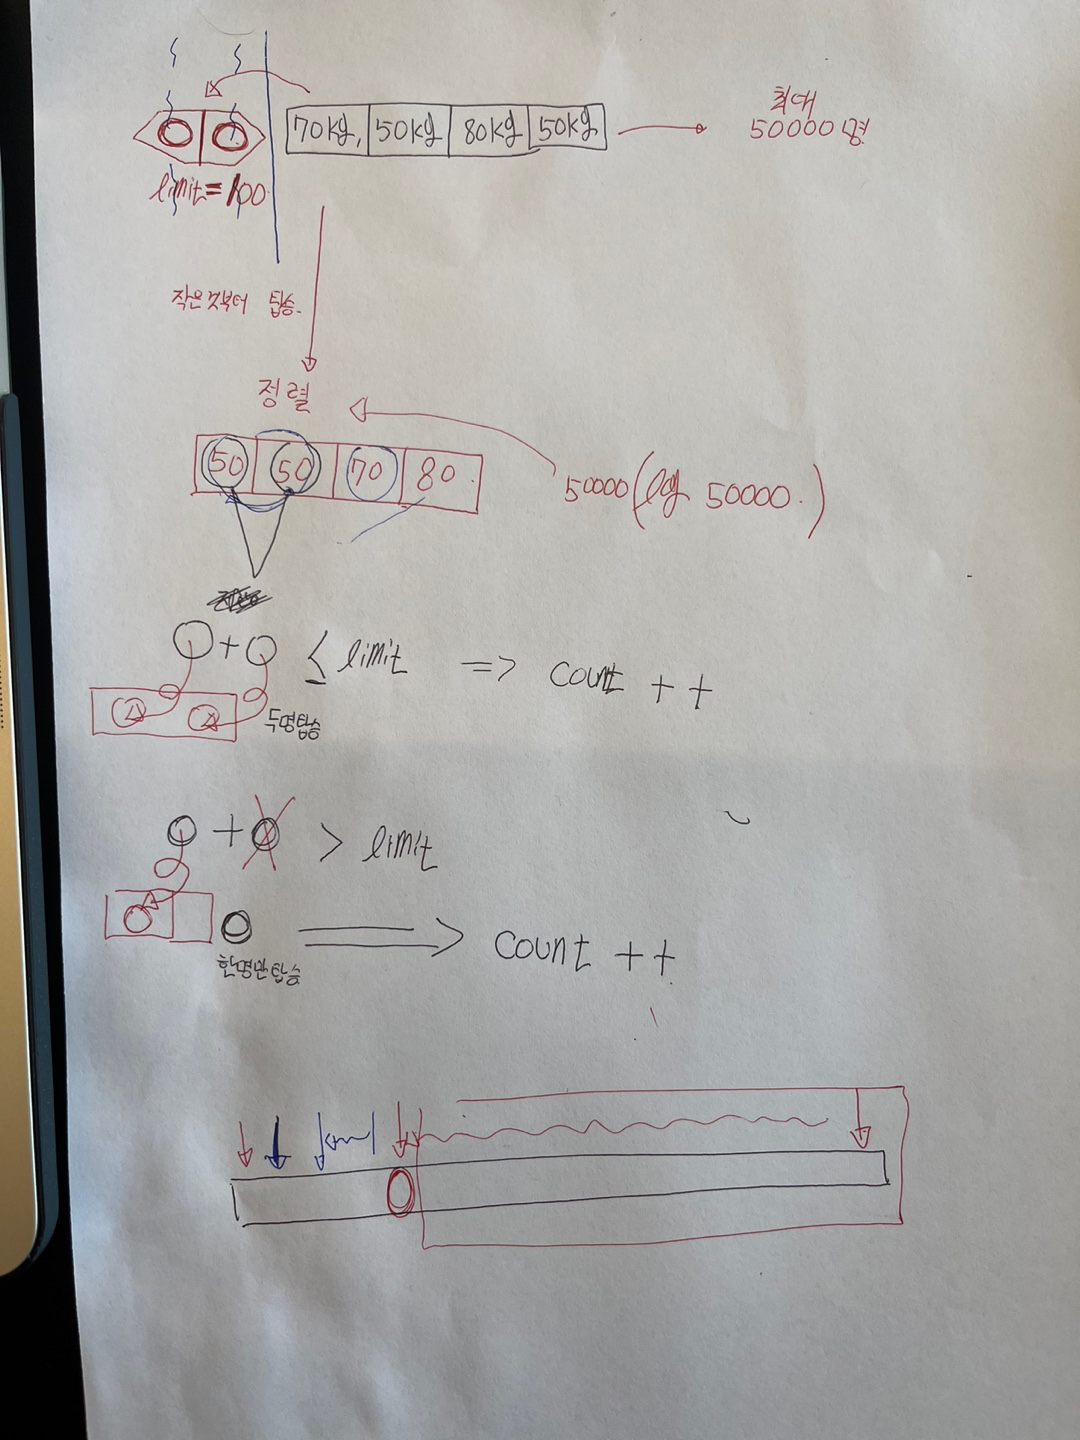 70kg, 50kg 80kg 50kg
최대
50000명
limit=100
작은것부터 탑승.
정렬
50 50 70 80
50000(log 50000.)
+ ≤ limit => count ++
두명탑승
+ > limit
count ++
한명만탑승